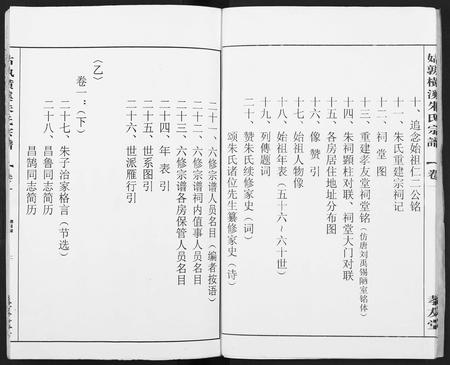 姑孰橫溪朱氏宗譜
卷一
孝友堂
十、追念始祖仁二公銘
十一、朱氏重建宗祠记
十二、祠堂图
十三、重建孝友堂祠堂铭（仿唐刘禹锡陋室铭体）
十四、朱祠顯柱对联、祠堂大门对联
十五、各房居住地址分布图
十六、像赞引
十七、始祖人物像
十八、始祖年表（五十六～六十世）
十九、列傳题词
二十、赞朱氏续修家史（词）
颂朱氏诸位先生纂修家史（诗）
二十一、六修宗谱人员名目（编者按语）
二十二、六修宗谱祠内值事人员名目
二十三、六修宗谱各房保管人员名目
二十四、年表引
二十五、世系图引
二十六、世派雁行引
（乙）
卷一：（下）
二十七、朱子治家格言（节选）
二十八、昌鲁同志简历
昌鹄同志简历